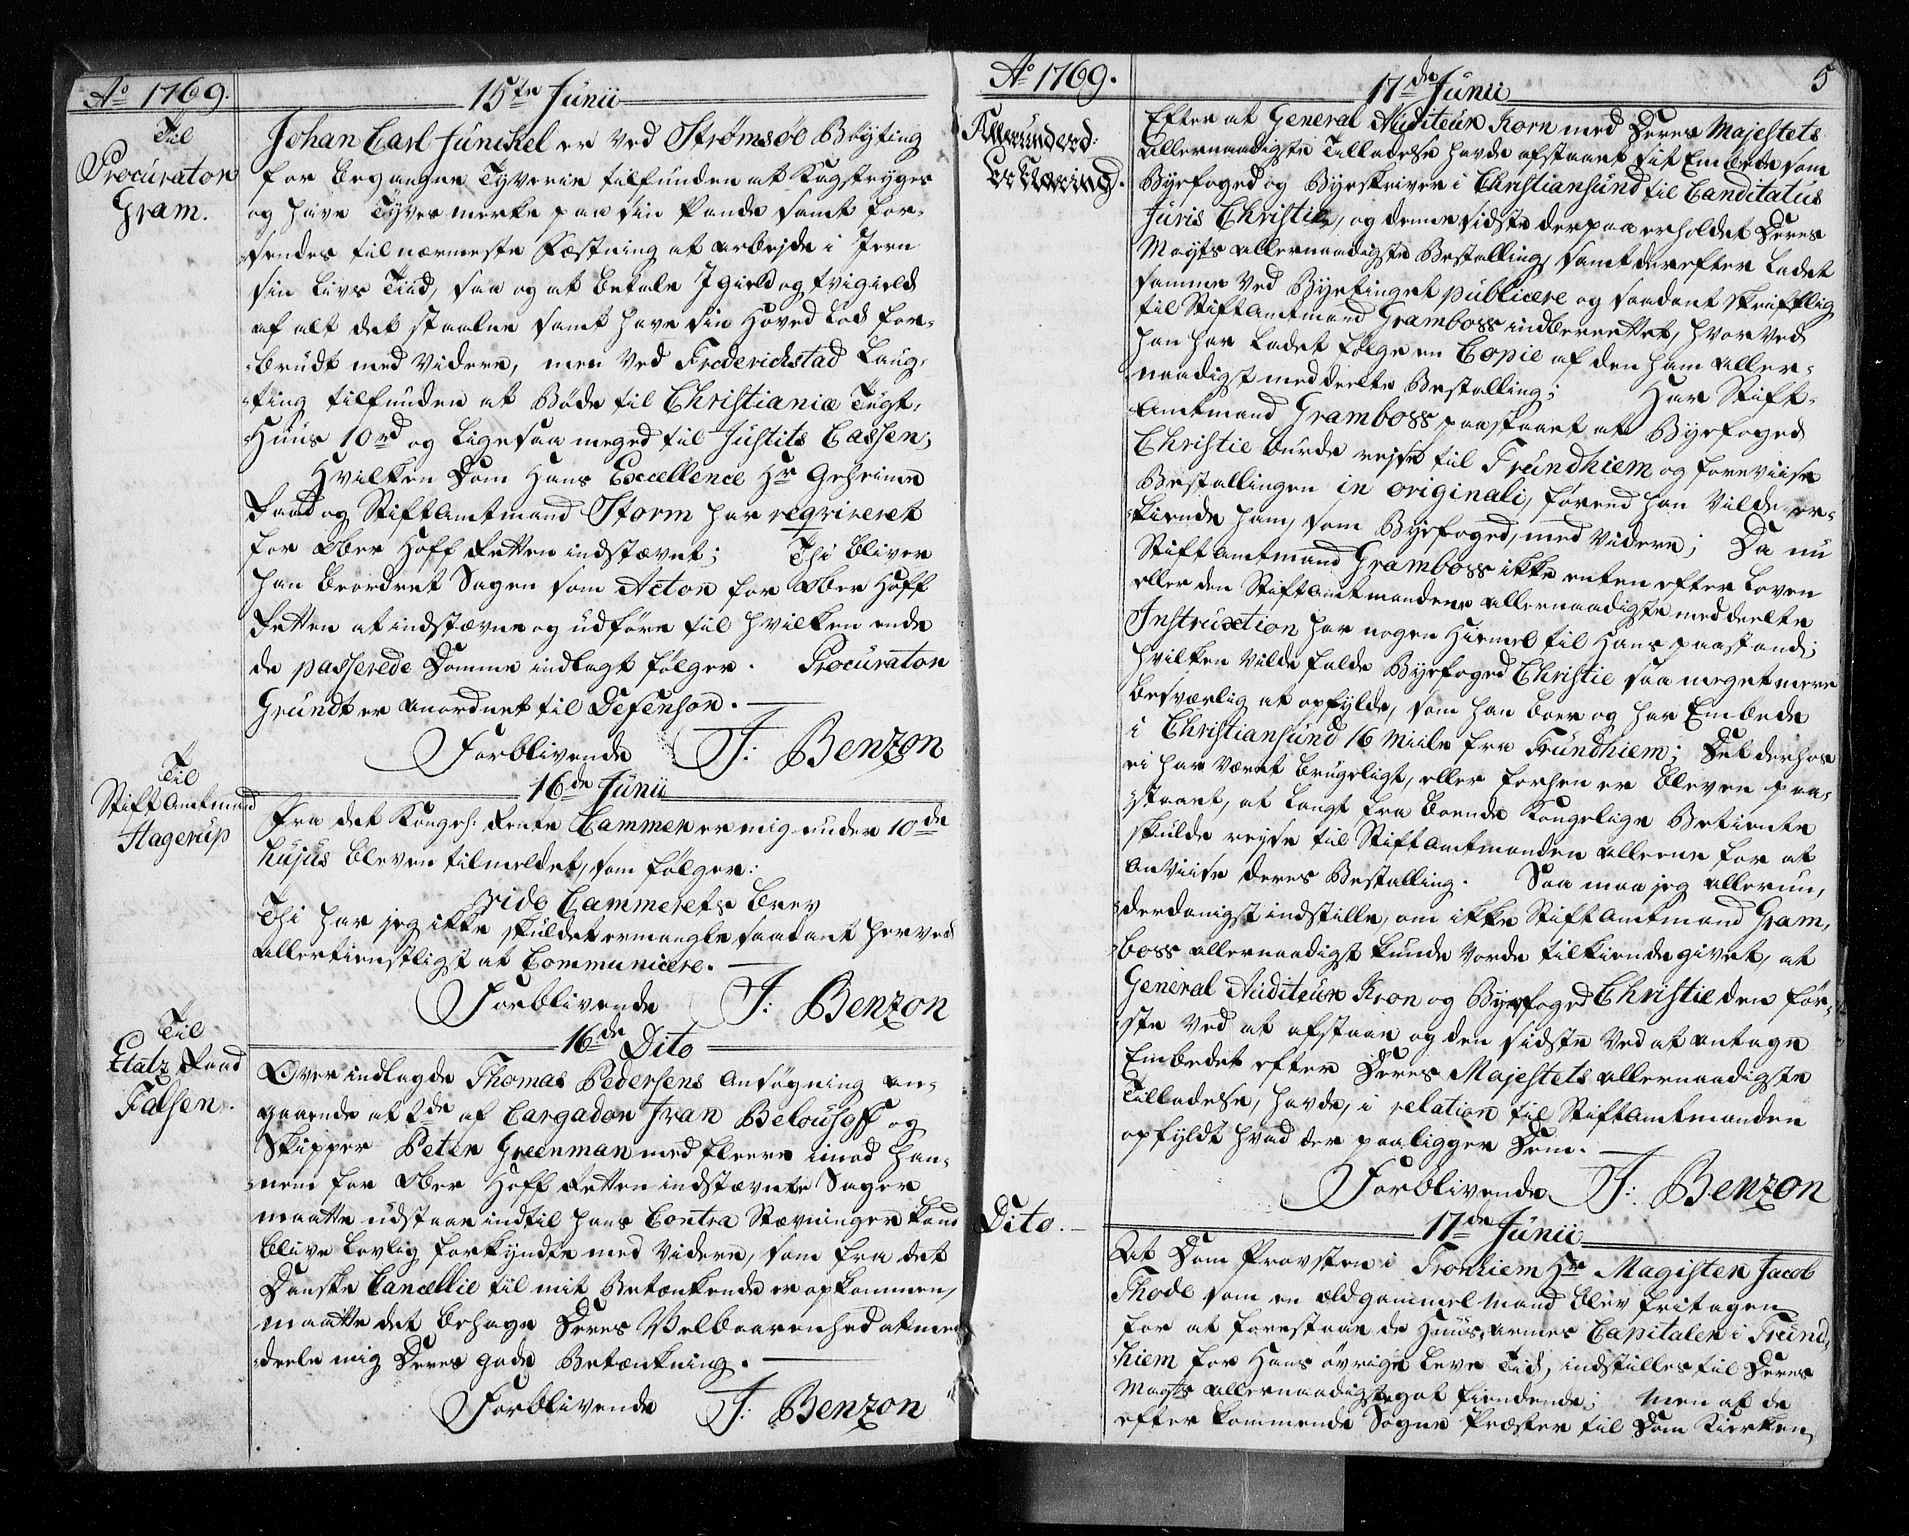 Ao 1769.
15de Junii
Til
Procurator
Gram.
Johan Carl Junckel er ved Strømsøe Bøyting
for begangne Tyverie tilfunden at Kagstryges
og have Tyvs merke paa sin Pande samt for-
sendes til nærmeste Fæstning at arbejde i Jern
sin Livs Tiid, saa og at betale Igield og tvigield
af alt det staalne samt have sin Hoved Lod for-
brudt med videre, men ved Frederichstad Laug-
ting tilfunden at Bøde til Christiania Tugt-
Huus 10 rd og ligesaa meged til Justits Cassen;
Hvilken Dom Hans Excellence Hr Geheime
Raad og Stiftamtmand Storm har reqvireret
for Ober Hoff Retten indstævnet; Thi bliver
han beordret Sagen som Actor for Ober Hoff
Retten at indstævne og udføre til hvilken ende
de passerede Domme indlagt følger. Procurator
Grundt er anordnet til Defensor.
Forblivende J: Benzon
16de Junii
Til
Stiftamtmand
Hagerup
Fra det Kongel: Rente Cammer er mig under 10de
hujus bleven tilmeldet, som følger:
vide Cammerets brev
Thi har jeg ikke skuldet ermangle saadant herved
allertienstligst at Communicere.
Forblivende J: Benzon
16de Dito
Til
Etatz Raad
Falsen.
Over indlagde Thomas Pedersens Ansøgning an-
gaaende at 2de af Cargador Ivan Belousoff og
Skipper Peter Greenman med fleere imod ham-
nem for Ober Hoff Retten indstævnte Sager
maatte udstaae indtil hans Contra Stævninger kand
blive lovlig forkyndte med videre, som fra det
Danske Cancellie til mit Betænkende er opkommen,
maatte det behage Deres Velbaarenhed at med-
deele mig Deres gode Betænkning.
Forblivende J: Benzon
Ao 1769.
17de Junii
5
Allerunderd:
Erklæring.
Efter at General Auditeur Korn med Deres Majestets
allernaadigste Tilladelse havde afstaaet sit Embede som
Byefoged og Byeskriver i Christiansund til Canditatus
Juris Christie, og denne sidste derpaa erholdet Deres
Mayts allernaadigste Bestalling, samt derefter ladet
samme ved Byetinget publicere og saadant skriftlig
til Stiftamtmand Gramboss indberettet, hvorved
han har ladet følge en Copie af den ham aller-
naadigst meddeelte Bestalling; Har Stift-
Amtmand Gramboss paastaaet at Byefoged
Christie burde rejse til Trundhiem og foreviise
Bestallingen in originali, førend han vilde er-
kiende ham, som Byefoged, med videre; Da nu
Stiftamtmand Gramboss ikke enten efter Loven
eller den Stiftamtmændene allernaadigste meddeelte
Instruxtion har nogen Hiemel til Hans paastand;
hvilken vilde falde Byefoged Christie saa meget mere
besværlig at opfylde, som han boer og har Embede
i Christiansund 16 Miile fra Trundhiem; Det derhos
ei har været brugeligt, eller forhen er bleven paa-
staaet, at langt fra boende Kongelige Betiente
skulde rejse til Stiftamtmanden alleene for at
anviise deres Bestalling. Saa maa jeg allerun-
derdanigst indstille, om ikke Stiftamtmand Gram-
boss allernaadigst kunde vorde tilkiendegivet, at
General Auditeur Kron og Byefoged Christie den før-
ste ved at afstaae og den sidste ved at antage
Embedet efter Deres Majestets allernaadigste
Tilladelse, havde, i relation til Stiftamtmanden
opfyldt hvad der paaligger Dem.
Forblivende J: Benzon
Dito.
17de Junii
At Dom Provsten i Tronhiem Hr Magister Jacob
Thode som en ældgammel Mand blev fritagen
for at forestaae de Huus armes Capitaler i Trund-
hiem for Hans øvrige Leve Tid, indstilles til Deres
Mayts allernaadigste got findende; Men at de
efter kommende Sogne Præster til Dom Kierken